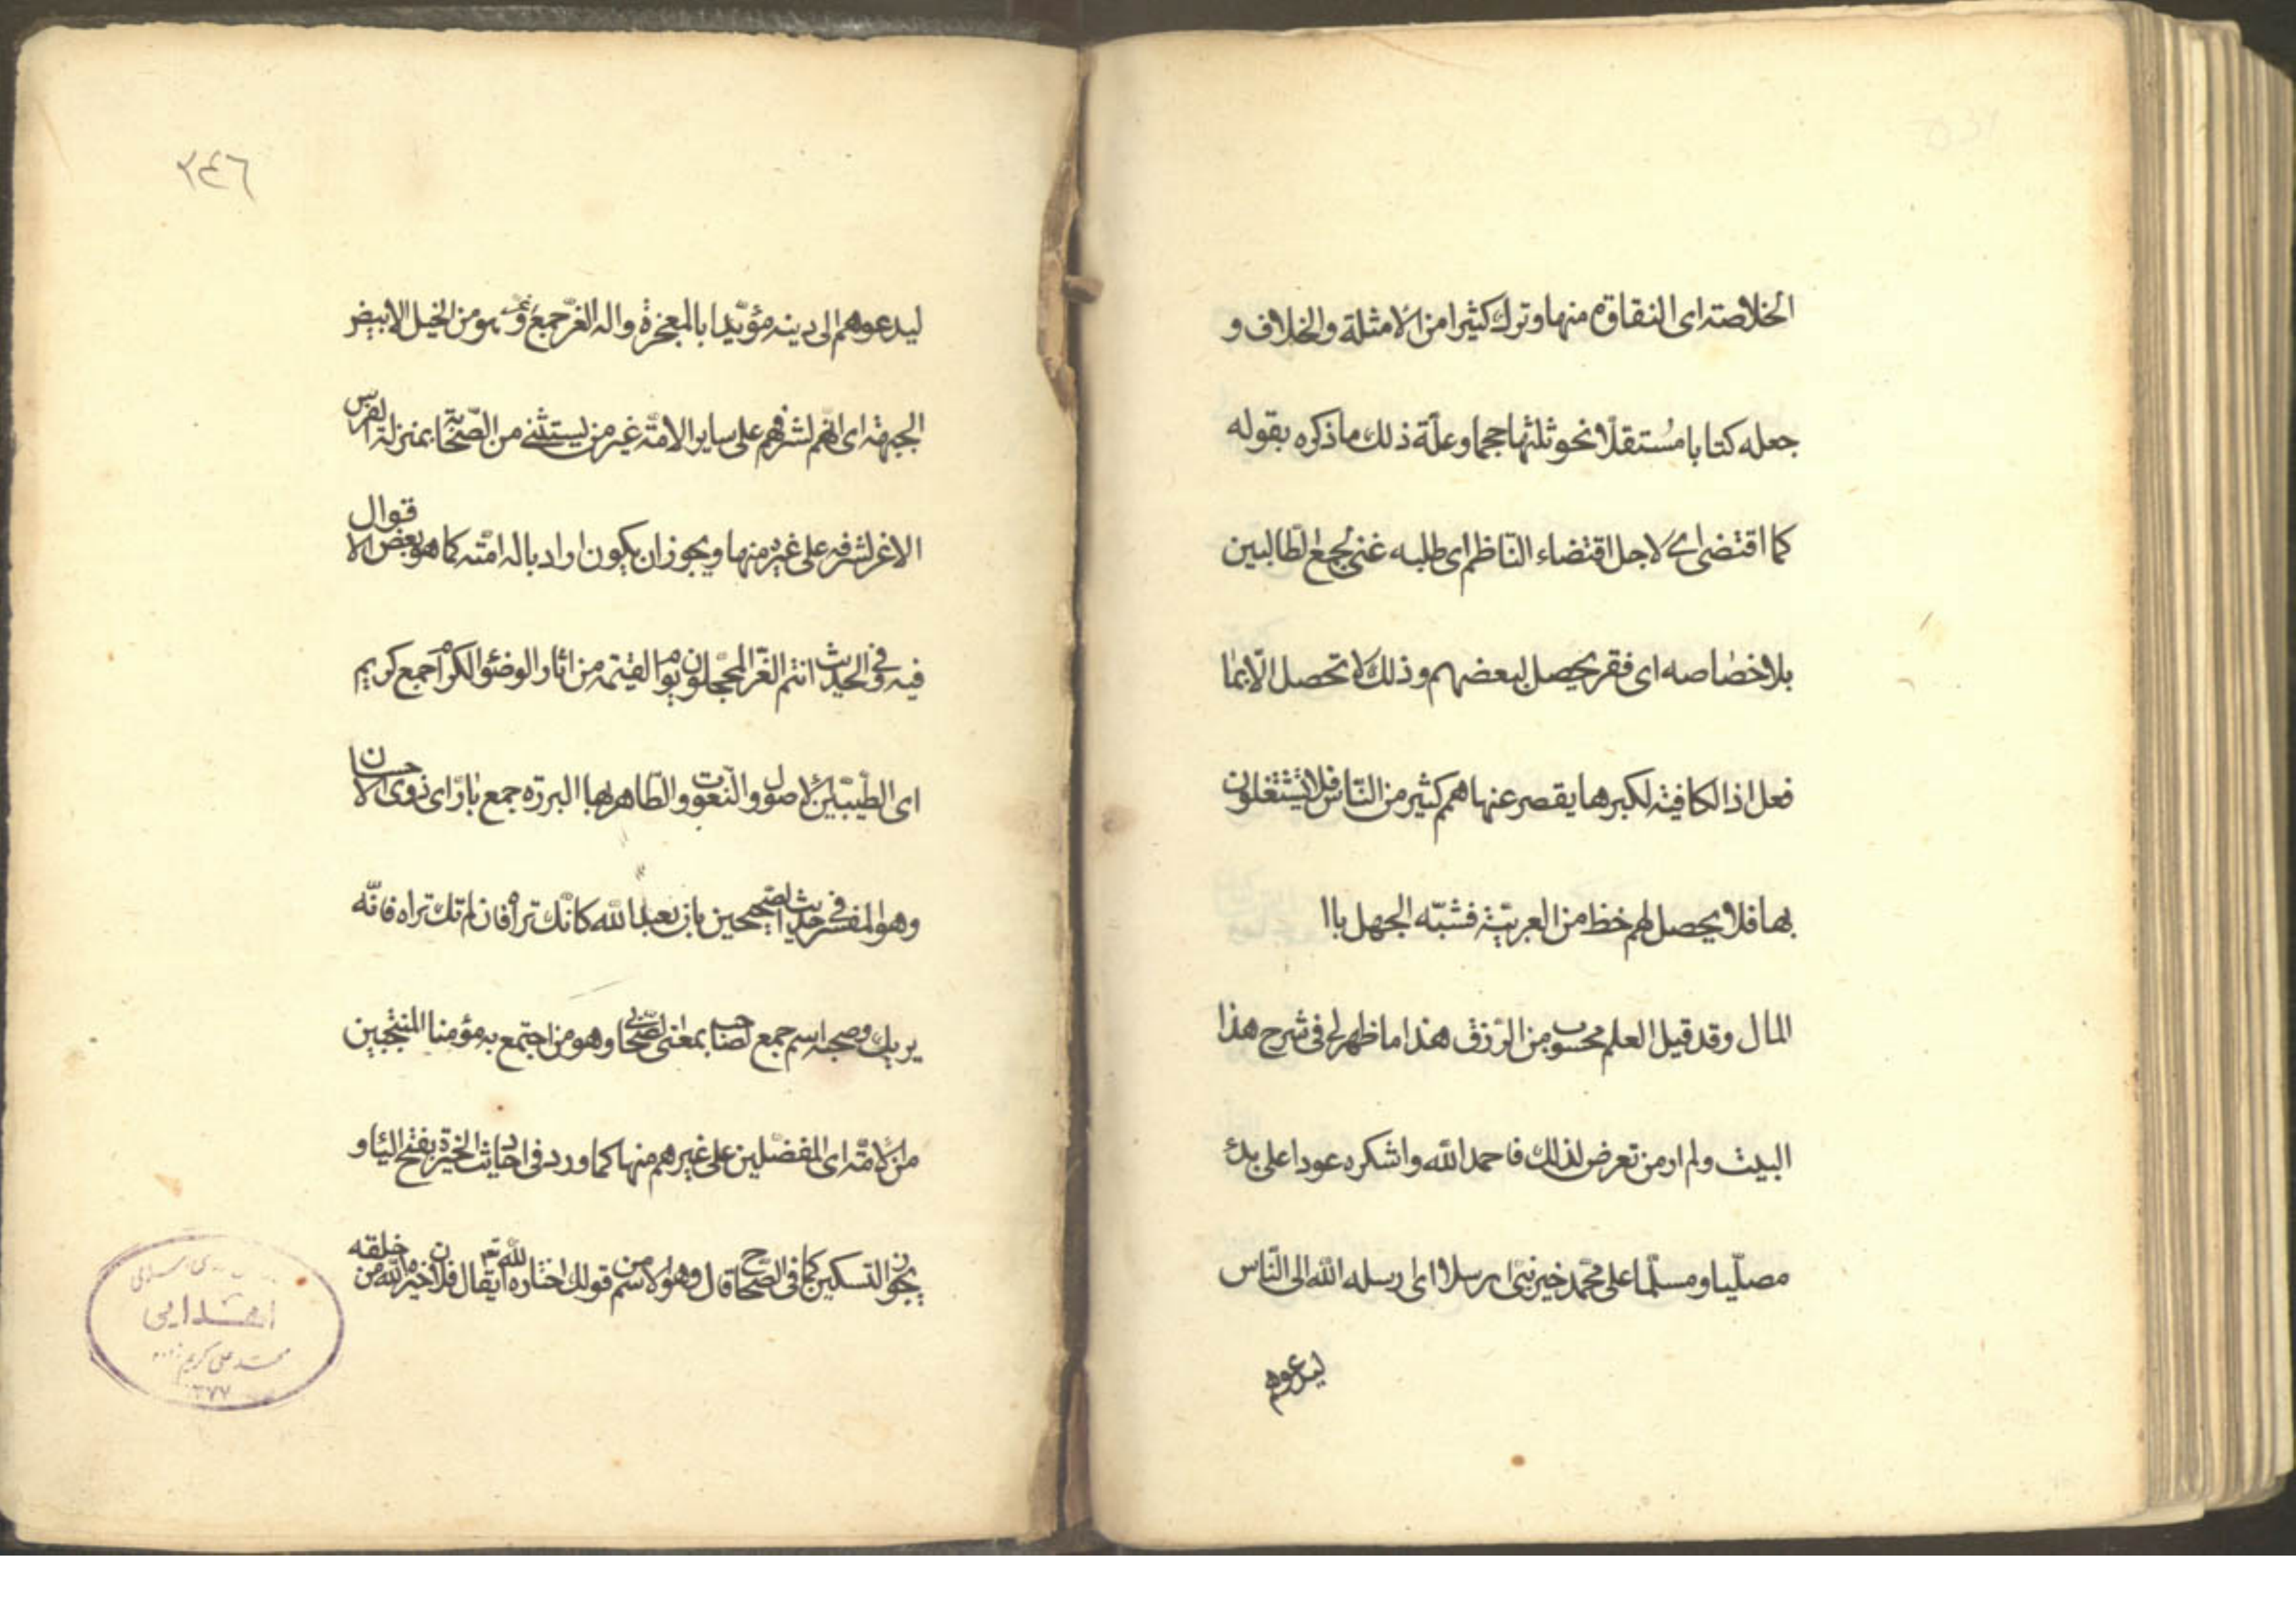 الخلاصته اى النقاوة منها وترك كثيرا من الامثلة والخلاف و
جعله كتابا مُستقلّا نحو ثلثها حجما وعلّة ذلك ما ذكره بقوله
كما اقتضى اى لاجل اقتضاء النّاظم اى طلبه غنى لجمع الطّالبين
بلا خصاصه اى فقر يحصل لبعضهم وذلك لا تحصل الّا بما
فعل اذ الكافيته لكبرها يقصر عنها همم كثير من النّاس فلا يشتغلون
بها فلا يحصل لهم خظ من العربيّة فشبّه الجهل باا
المال وقد قيل العلم محسوب من الرّزق هذا ما ظهر لى فى شرح هذا
البيت ولم ار من تعرض لذلك فاحمد الله واشكره عودا على بدئ
مصلّيا ومسلّما على محمّد خير نبىّ ارسلا اى ارسله الله الى النّاس
ليدعوهم
٢٤٦
ليدعوهم الى دينه مؤيّدا بالمعجزة واله الغرّ جمع هو من الخيل الابيض
الجبهة اى انّهم لشرفهم على ساير الامّة غير من يستثنى من الصّحابة بمنزلة الفرس
الاغر لشرفه على غيره منها ويجوز ان يكون اراد باله امّته كما هو بعض الاقوال
فيه وفى الحديث انتم الغرّ المحجّلون يوم القيمة من اثار الوضئو الكرام جمع كريم
اى الطّيبّين الاصول والنّعوت والطّاهريها البررة جمع بارّ اى ذوى الاحسان
وهو المفسّر فى حديث الصّحيحين بان تعبد الله كانّك تراه فان لم تك تراه فانّه
يريك وصحبه اسم جمع لصاحب بمعنى الصّحابى وهو من اجتمع به مؤمنا المنتجبين
من الامّة اى المفضّلين على غيرهم منها كما ورد فى احاديث الخيرة بفتح اليا و
يجوز التسكين كما فى الصّحاح قال وهو الاسم من قولك اختاره الله تع يقال فلان خيرة الله من خلقه
اهدایی
محمد علی کریم
١٣٧٧